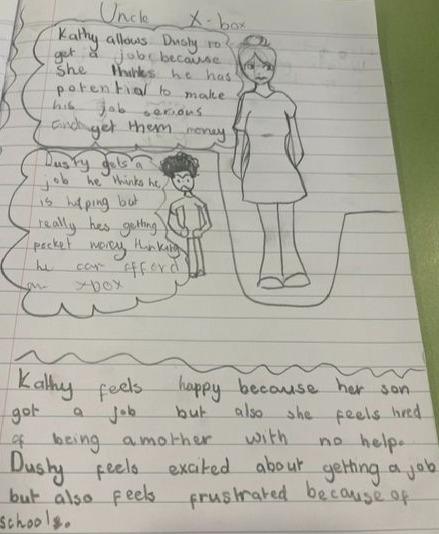 Uncle X-box
Kathy allows Dusty to
get a job because
she thinks he has
potential to make
his job serious
and get them money
Dusty gets a
job he thinks he
is helping but
really hes getting
pocket money thinking
he can afford
an xbox
Kathy feels happy because her son
got a job but also she feels tired
of being a mother with no help.
Dusty feels excited about getting a job
but also feels frustrated because of
schools.